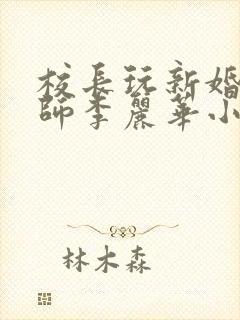 校長玩新婚
師李麗華小
林木森